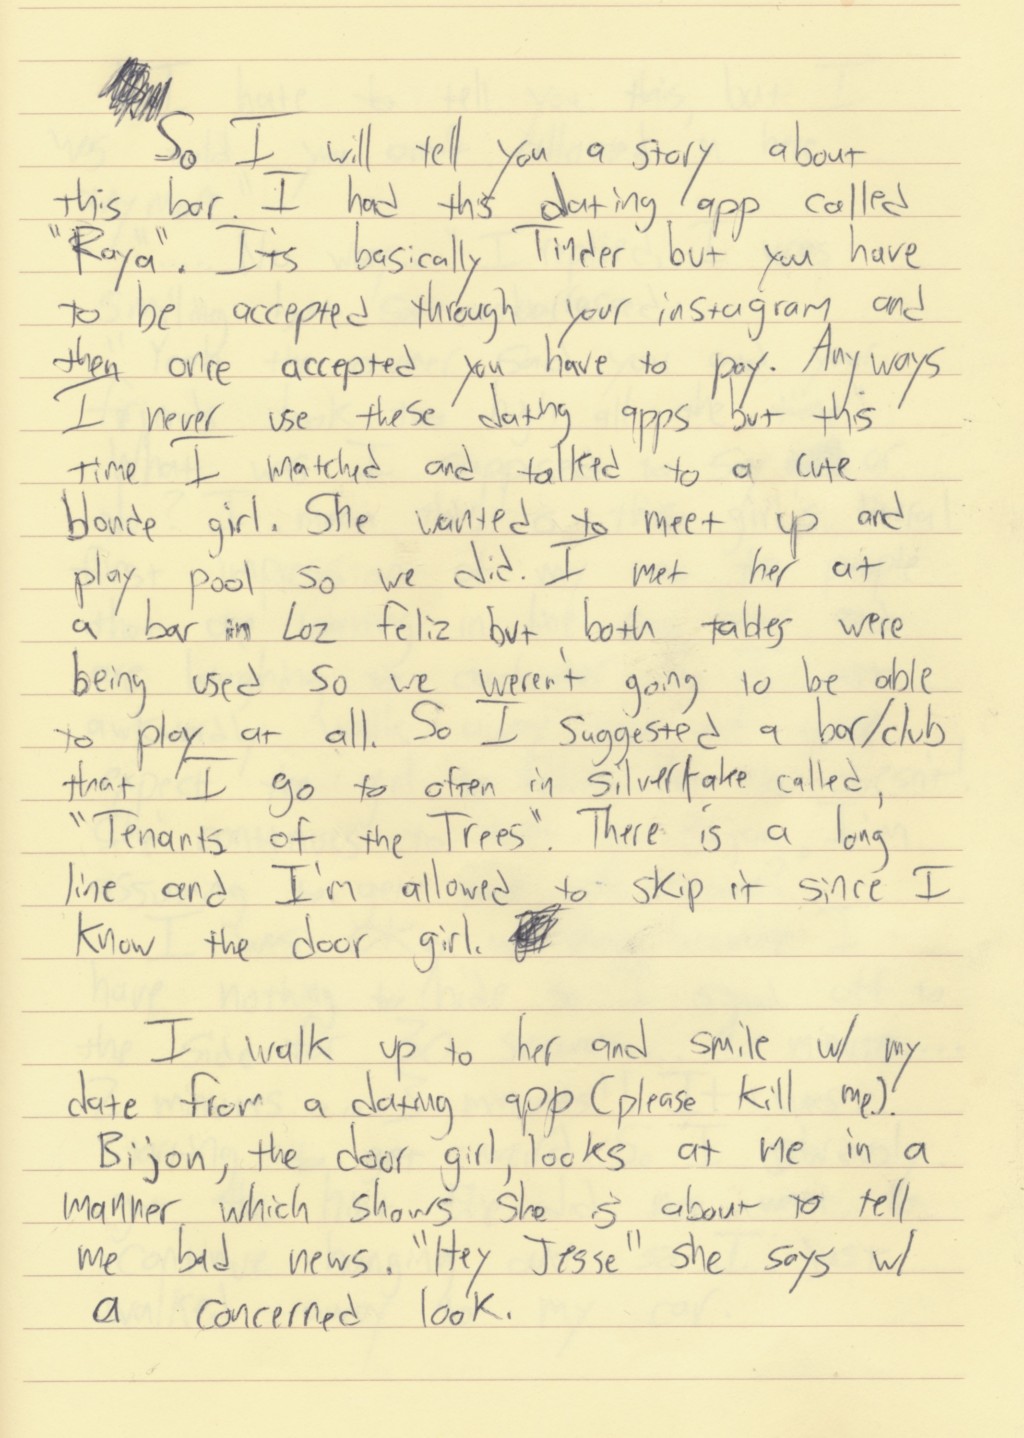 So I will tell you a story about
this bar. I had this dating app called
"Raya". It's basically Tinder but you have
to be accepted through your instagram and
then once accepted you have to pay. Anyways
I never use these dating apps but this
time I matched and talked to a cute
blonde girl. She wanted to meet up and
play pool so we did. I met her at
a bar in Loz feliz but both tables were
being used so we weren't going to be able
to play at all. So I suggested a bar/club
that I go to often in silverlake called,
"Tenants of the Trees". There is a long
line and I'm allowed to skip it since I
know the door girl.
I walk up to her and smile w/ my
date from a dating app (please kill me).
Bijon, the door girl, looks at me in a
manner which shows she is about to tell
me bad news. "Hey Jesse" she says w/
a concerned look.